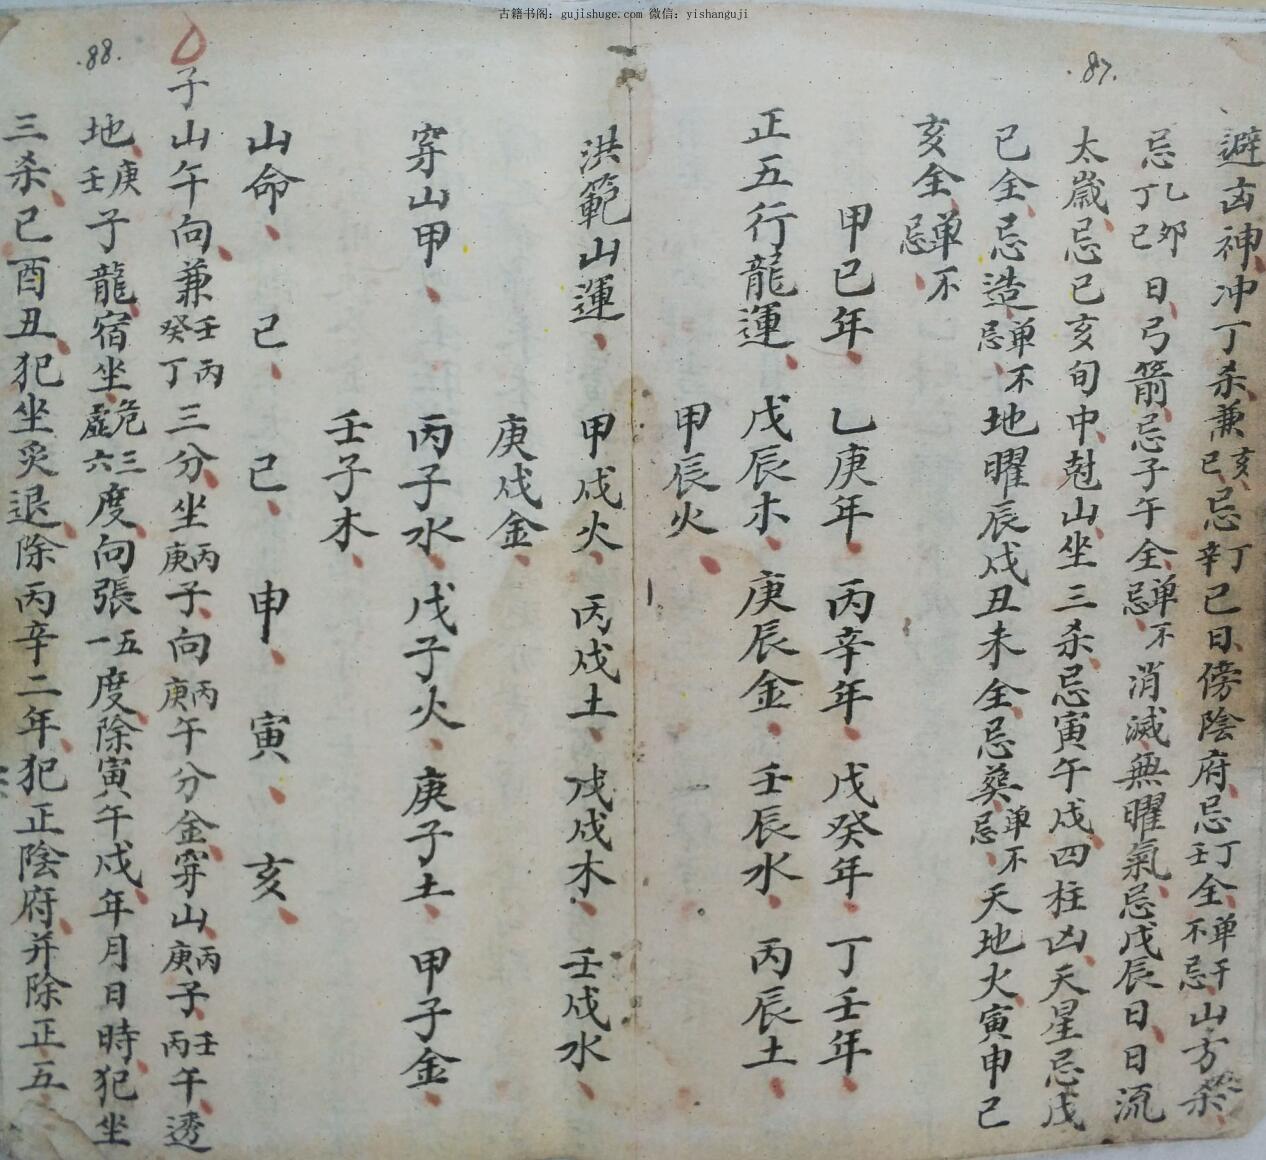 古籍书阁：gujishuge.com 微信：yishanguji
87.
避凶神、冲丁杀、兼亥巳、忌丁辛巳日、傍陰府、忌丁壬全、单干不忌、山方杀、
忌乙卯丁巳日、弓箭忌子午全、单不忌、消滅無曜氣、忌戊辰日、日流
太歲、忌己亥旬中、尅山、坐三杀、忌寅午戌四柱凶、天星忌戊
巳全、忌造、单不忌、地曜辰戌丑未全、忌葵、单不忌、天地火、寅申巳
亥全、单不忌、
甲己年、乙庚年、丙辛年、戊癸年、丁壬年、
正五行龍運、戊辰木、庚辰金、壬辰水、丙辰土、
甲辰火、
洪範山運、甲戌火、丙戌土、戊戌木、壬戌水、
庚戌金、
穿山甲、丙子水、戊子火、庚子土、甲子金、
壬子木、
山命、己、巳、申、寅、亥、
88.
子山午向、兼壬丙癸丁三分、坐丙庚子、向丙庚午分金、穿山丙庚子、壬丙午、透
地、庚壬子龍、宿坐、危三虛六度、向張五一度、除寅午戌年月日時、犯坐
三杀、巳酉丑、犯坐灸退、除丙辛二年、犯正陰府、并除正五、